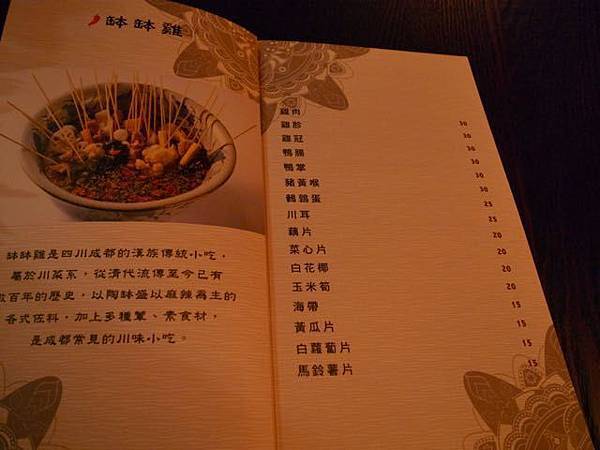 缽缽雞
缽缽雞是四川成都的漢族傳統小吃，
屬於川菜系，從清代流傳至今已有
數百年的歷史，以陶缽盛以麻辣為主的
各式佐料，加上多種葷、素食材，
是成都常見的川味小吃。
雞肉 30
雞胗 30
雞冠 30
鴨腸 30
鴨掌 30
豬黃喉 30
鵪鶉蛋 25
川耳 25
藕片 20
菜心片 20
白花椰 20
玉米筍 20
海帶 15
黃瓜片 15
白蘿蔔片 15
馬鈴薯片 15